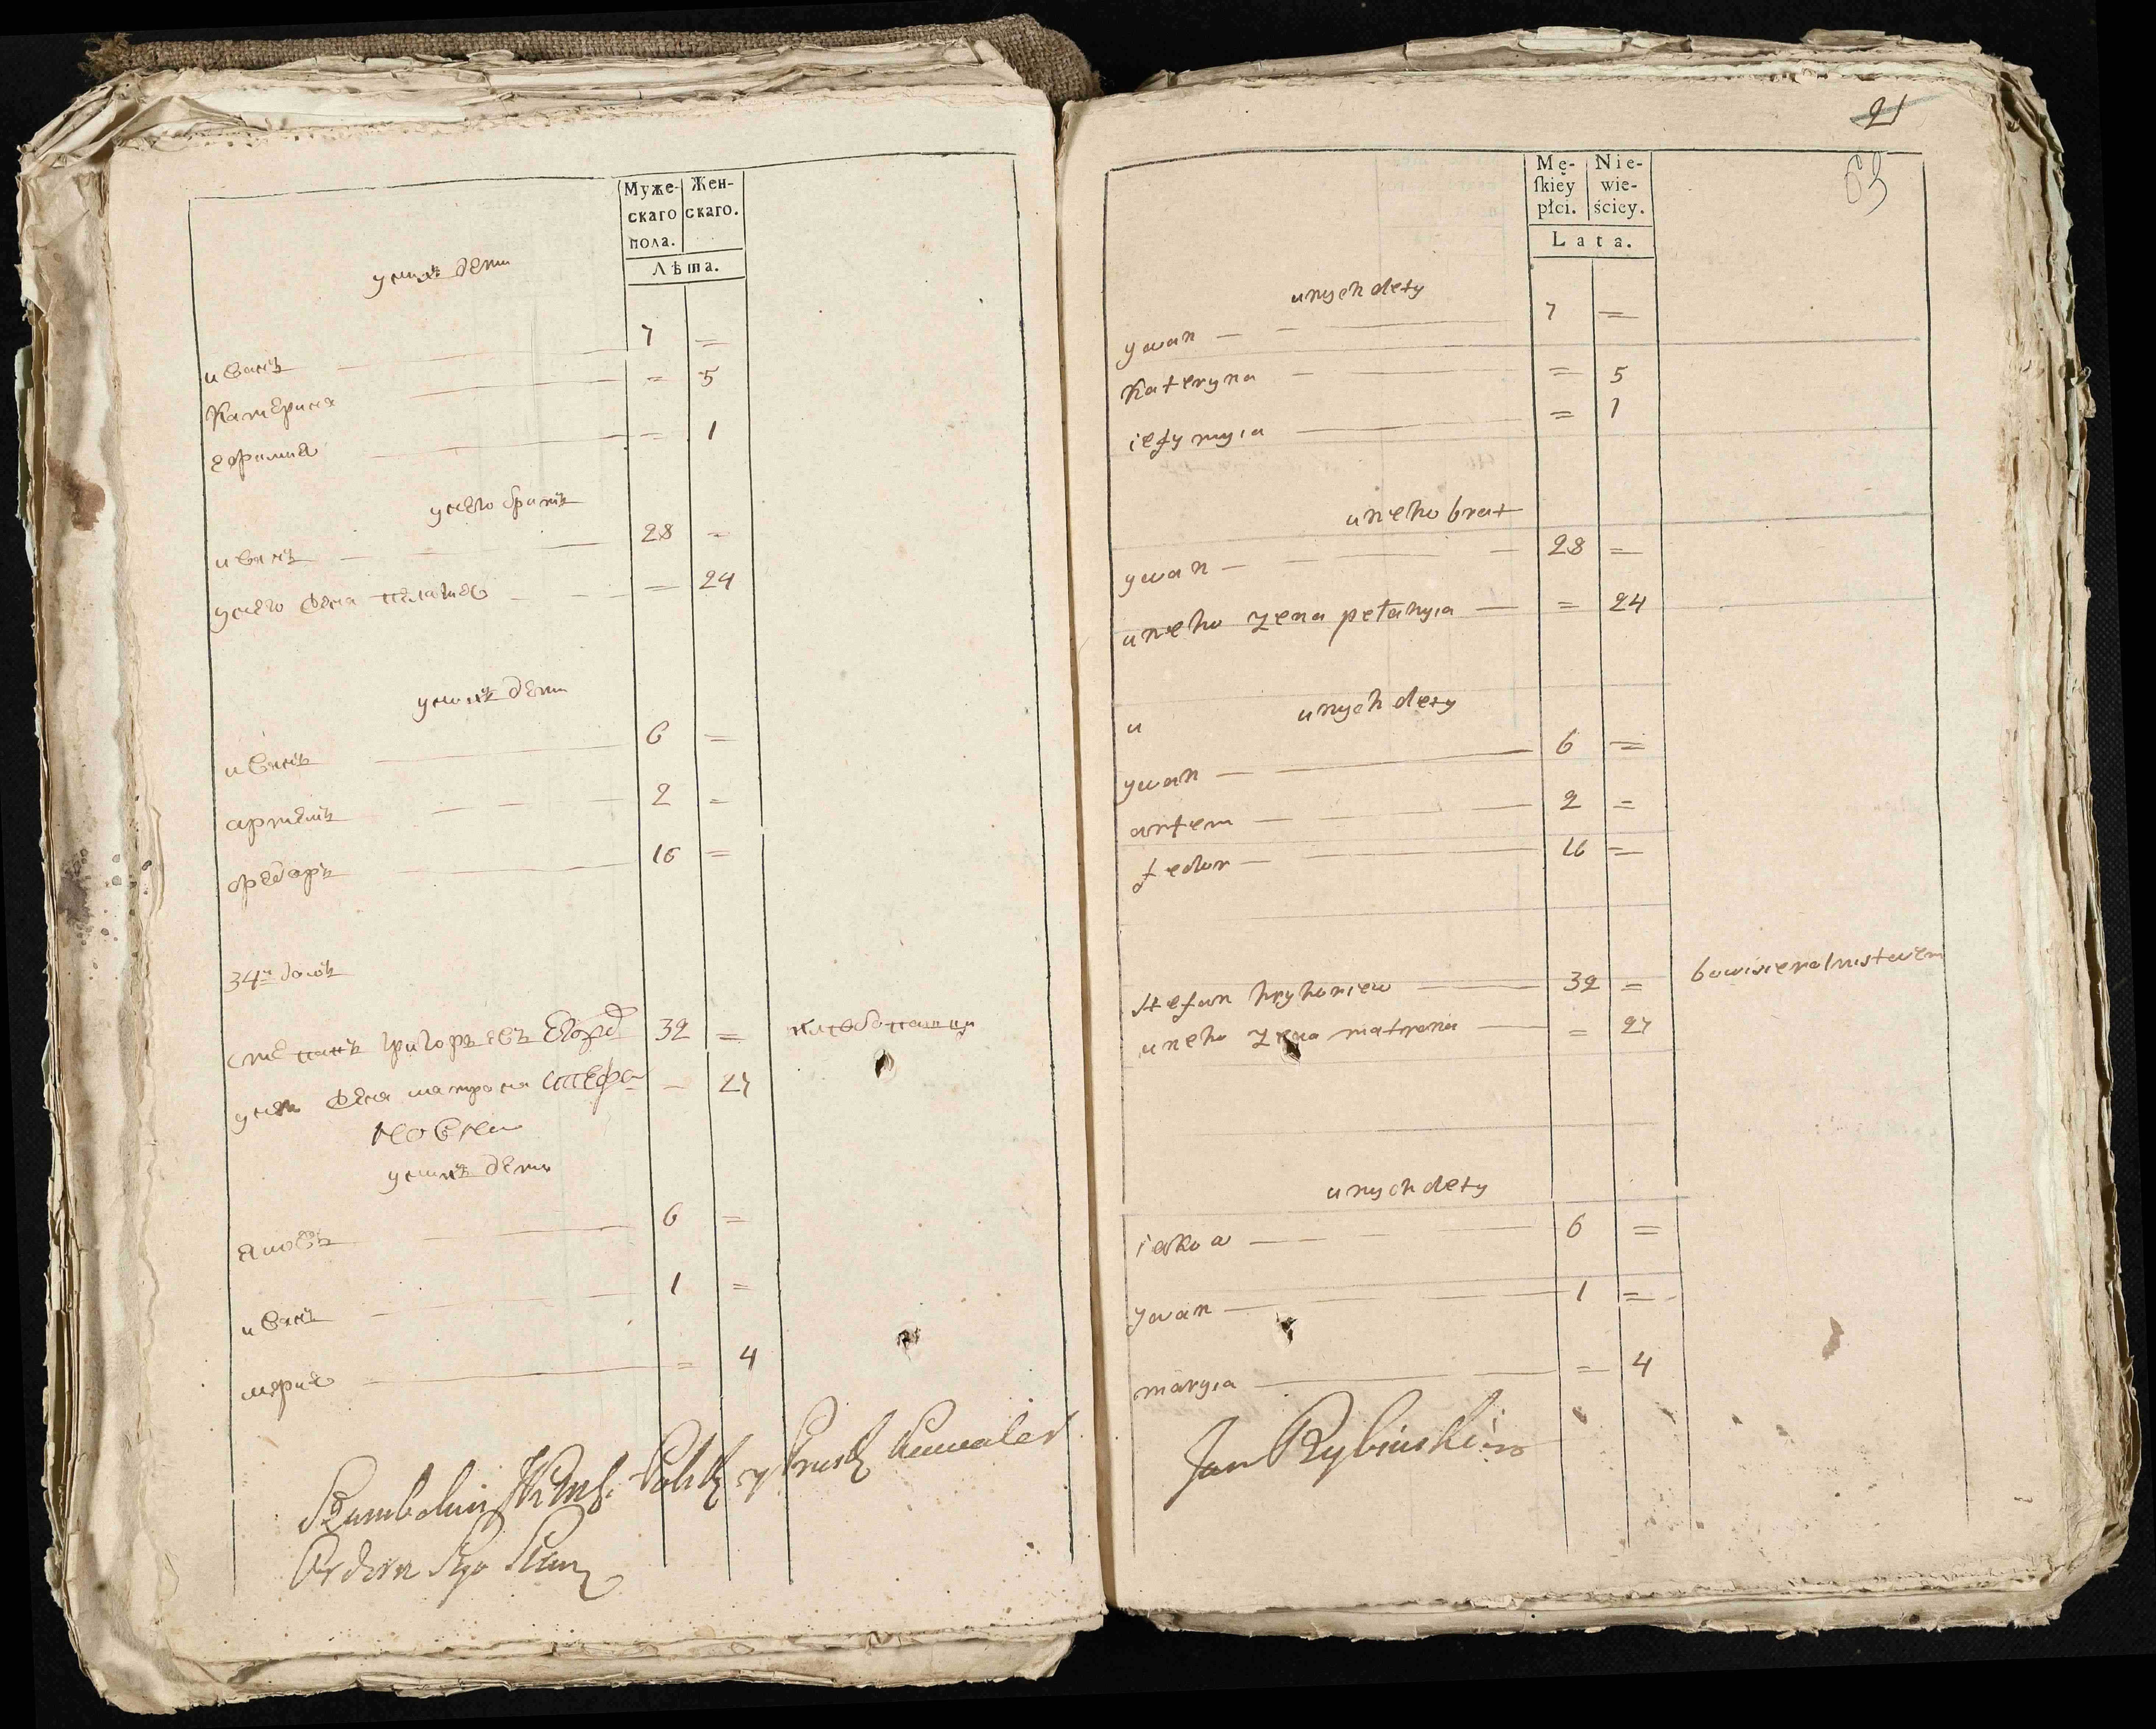 Муже- Жен-
скаго скаго.
пола.
Лѣта.
у нихъ дети
иванъ 7 =
Катерина = 5
ефимия = 1
у него братъ
иванъ 28 =
у него жена пелагия = 24
у нихъ дети
иванъ 6 =
артемъ 2 =
федоръ 16 =
34й домъ
степанъ григорьевъ 32 =
у него жена матрона Стефа — 27
новна
у нихъ дети
яковъ 6 =
иванъ 1 =
мария = 4
Kawaler
Orderu
21
63
Mę- Nie-
ſkiey wie-
płci. ściey.
Lata.
u nych dety
ywan 7 =
Kateryna = 5
iefymyia = 1
u neho brat
ywan 28 =
u neho zena pełahyia = 24
u
u nych dety
ywan 6 =
artem 2 =
fedor 16 =
stefan hryhoriew 32 =
u neho zena matrona = 27
u nych dety
iakow 6 =
ywan 1 =
maryia = 4
Jan Rybinski